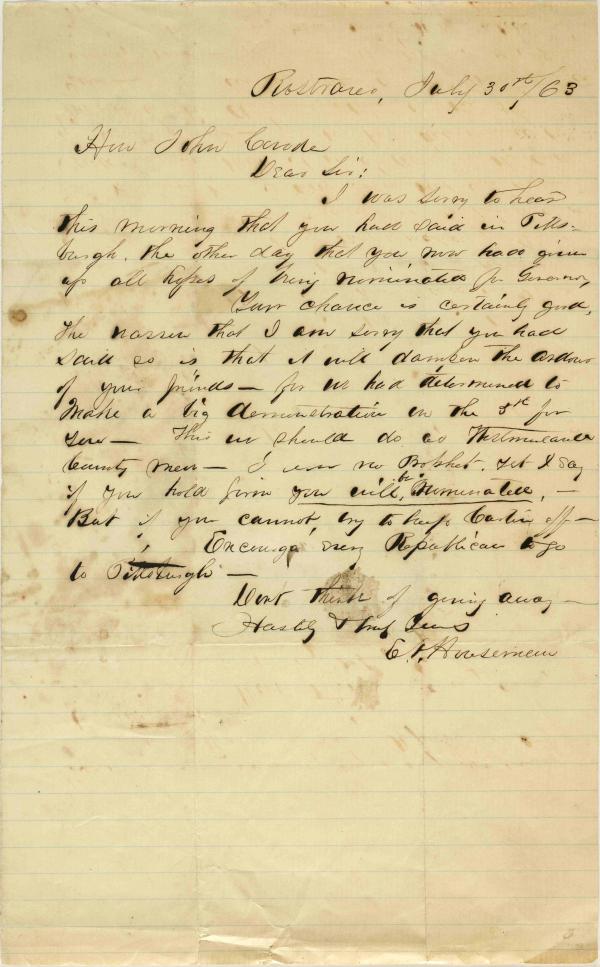 Rostraver, July 30th/63
Hon John Covode
Dear Sir:
I was sorry to hear
this morning that you had said in Pitts-
burgh the other day that you now had given
up all hopes of being nominated for Governor,
Your chance is certainly good,
The reason that I am sorry that you had
said so is that it will dampen the ardour
of your friends — for we had determined to
make a big demonstration on the 5th for
you — This we should do as Westmoreland
County men — I am no Prophet, yet I say
if you hold firm you will be nominated, —
But if you cannot, try to keep Curtin off —
Encourage every Republican to go
to Pittsburgh —
Dont think of giving away —
Hastily & truly Yours
Houseman